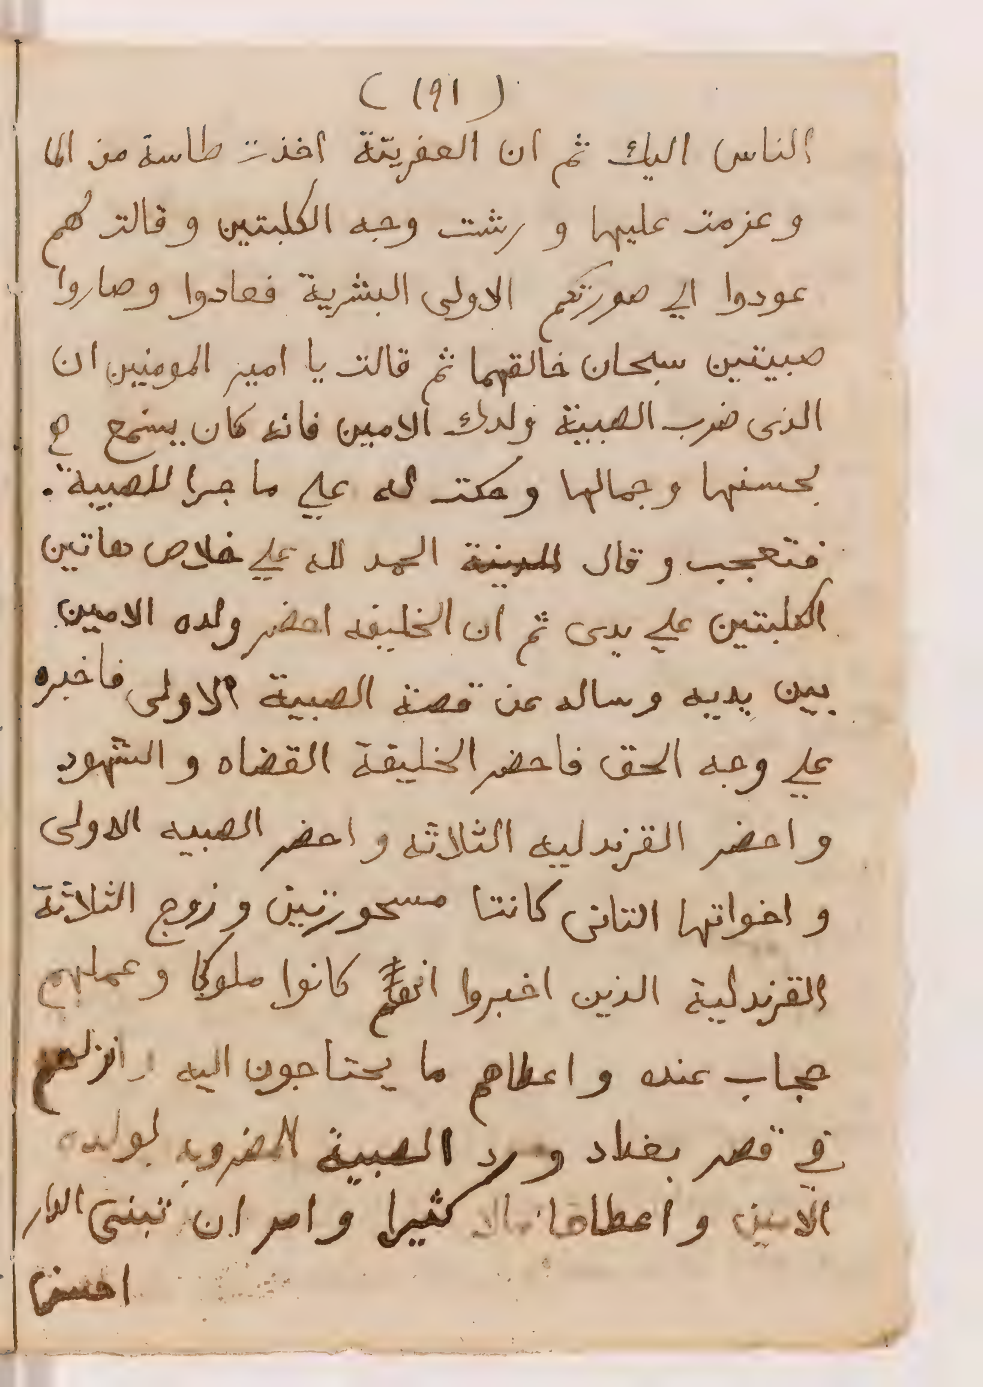 (١٩١)
الناس اليك ثم ان العفريتة اخذت طاسة من الما
وعزمت عليها و رشت وجه الكلبتين وقالت لهم
عودوا الي صورتكم الاولى البشرية فعادوا وصاروا
صبيتين سبحان خالقهما ثم قالت يا امير المومنين ان
الذى ضرب الصبية ولدك الامين فانه كان يسمع
بحسنها وجمالها وحكت له علي ما جرا للصبية.
فتعجب وقال الحمد لله علي خلاص هاتين
الكلبتين علي يدى ثم ان الخليفه احضر ولده الامين
بين يديه وساله عن قصة الصبية الاولى فاخبره
علي وجه الحق فاحضر الخليفة القضاه والشهود
واحضر القرندليه الثلاثه واحضر الصبيه الاولى
و اخواتها التانى كانتا مسحورتين وزوج الثلاثة
القرندلية الذين اخبروا انهم كانوا ملوكا وعملهم
حجاب عنده واعطاهم ما يحتاجون اليه وانزلهم
في قصر بغداد ورد الصبية المضروبه لولده
الامين و اعطاها مالا كثيرا وامر ان تبنى الدار
احسن